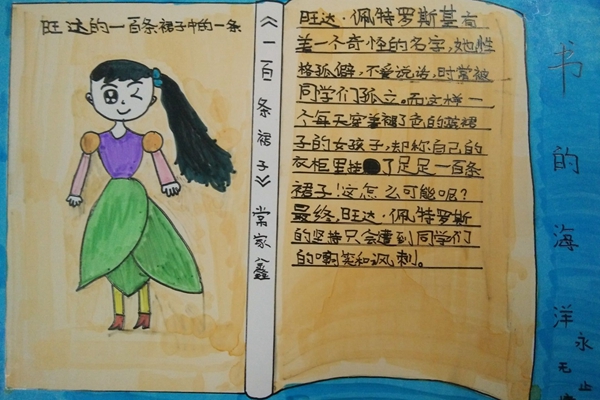 旺达的一百条裙子中的一条
《一百条裙子》常家鑫
旺达·佩特罗斯基有
着一个奇怪的名字,她性
格孤僻,不爱说话,时常被
同学们孤立。而这样一
个每天穿着褪了色的蓝裙
子的女孩子,却称自己的
衣柜里挂了足足一百条
裙子!这怎么可能呢?
最终,旺达·佩特罗斯
的坚持只会遭到同学们
的嘲笑和讽刺。
书的海洋
永无止